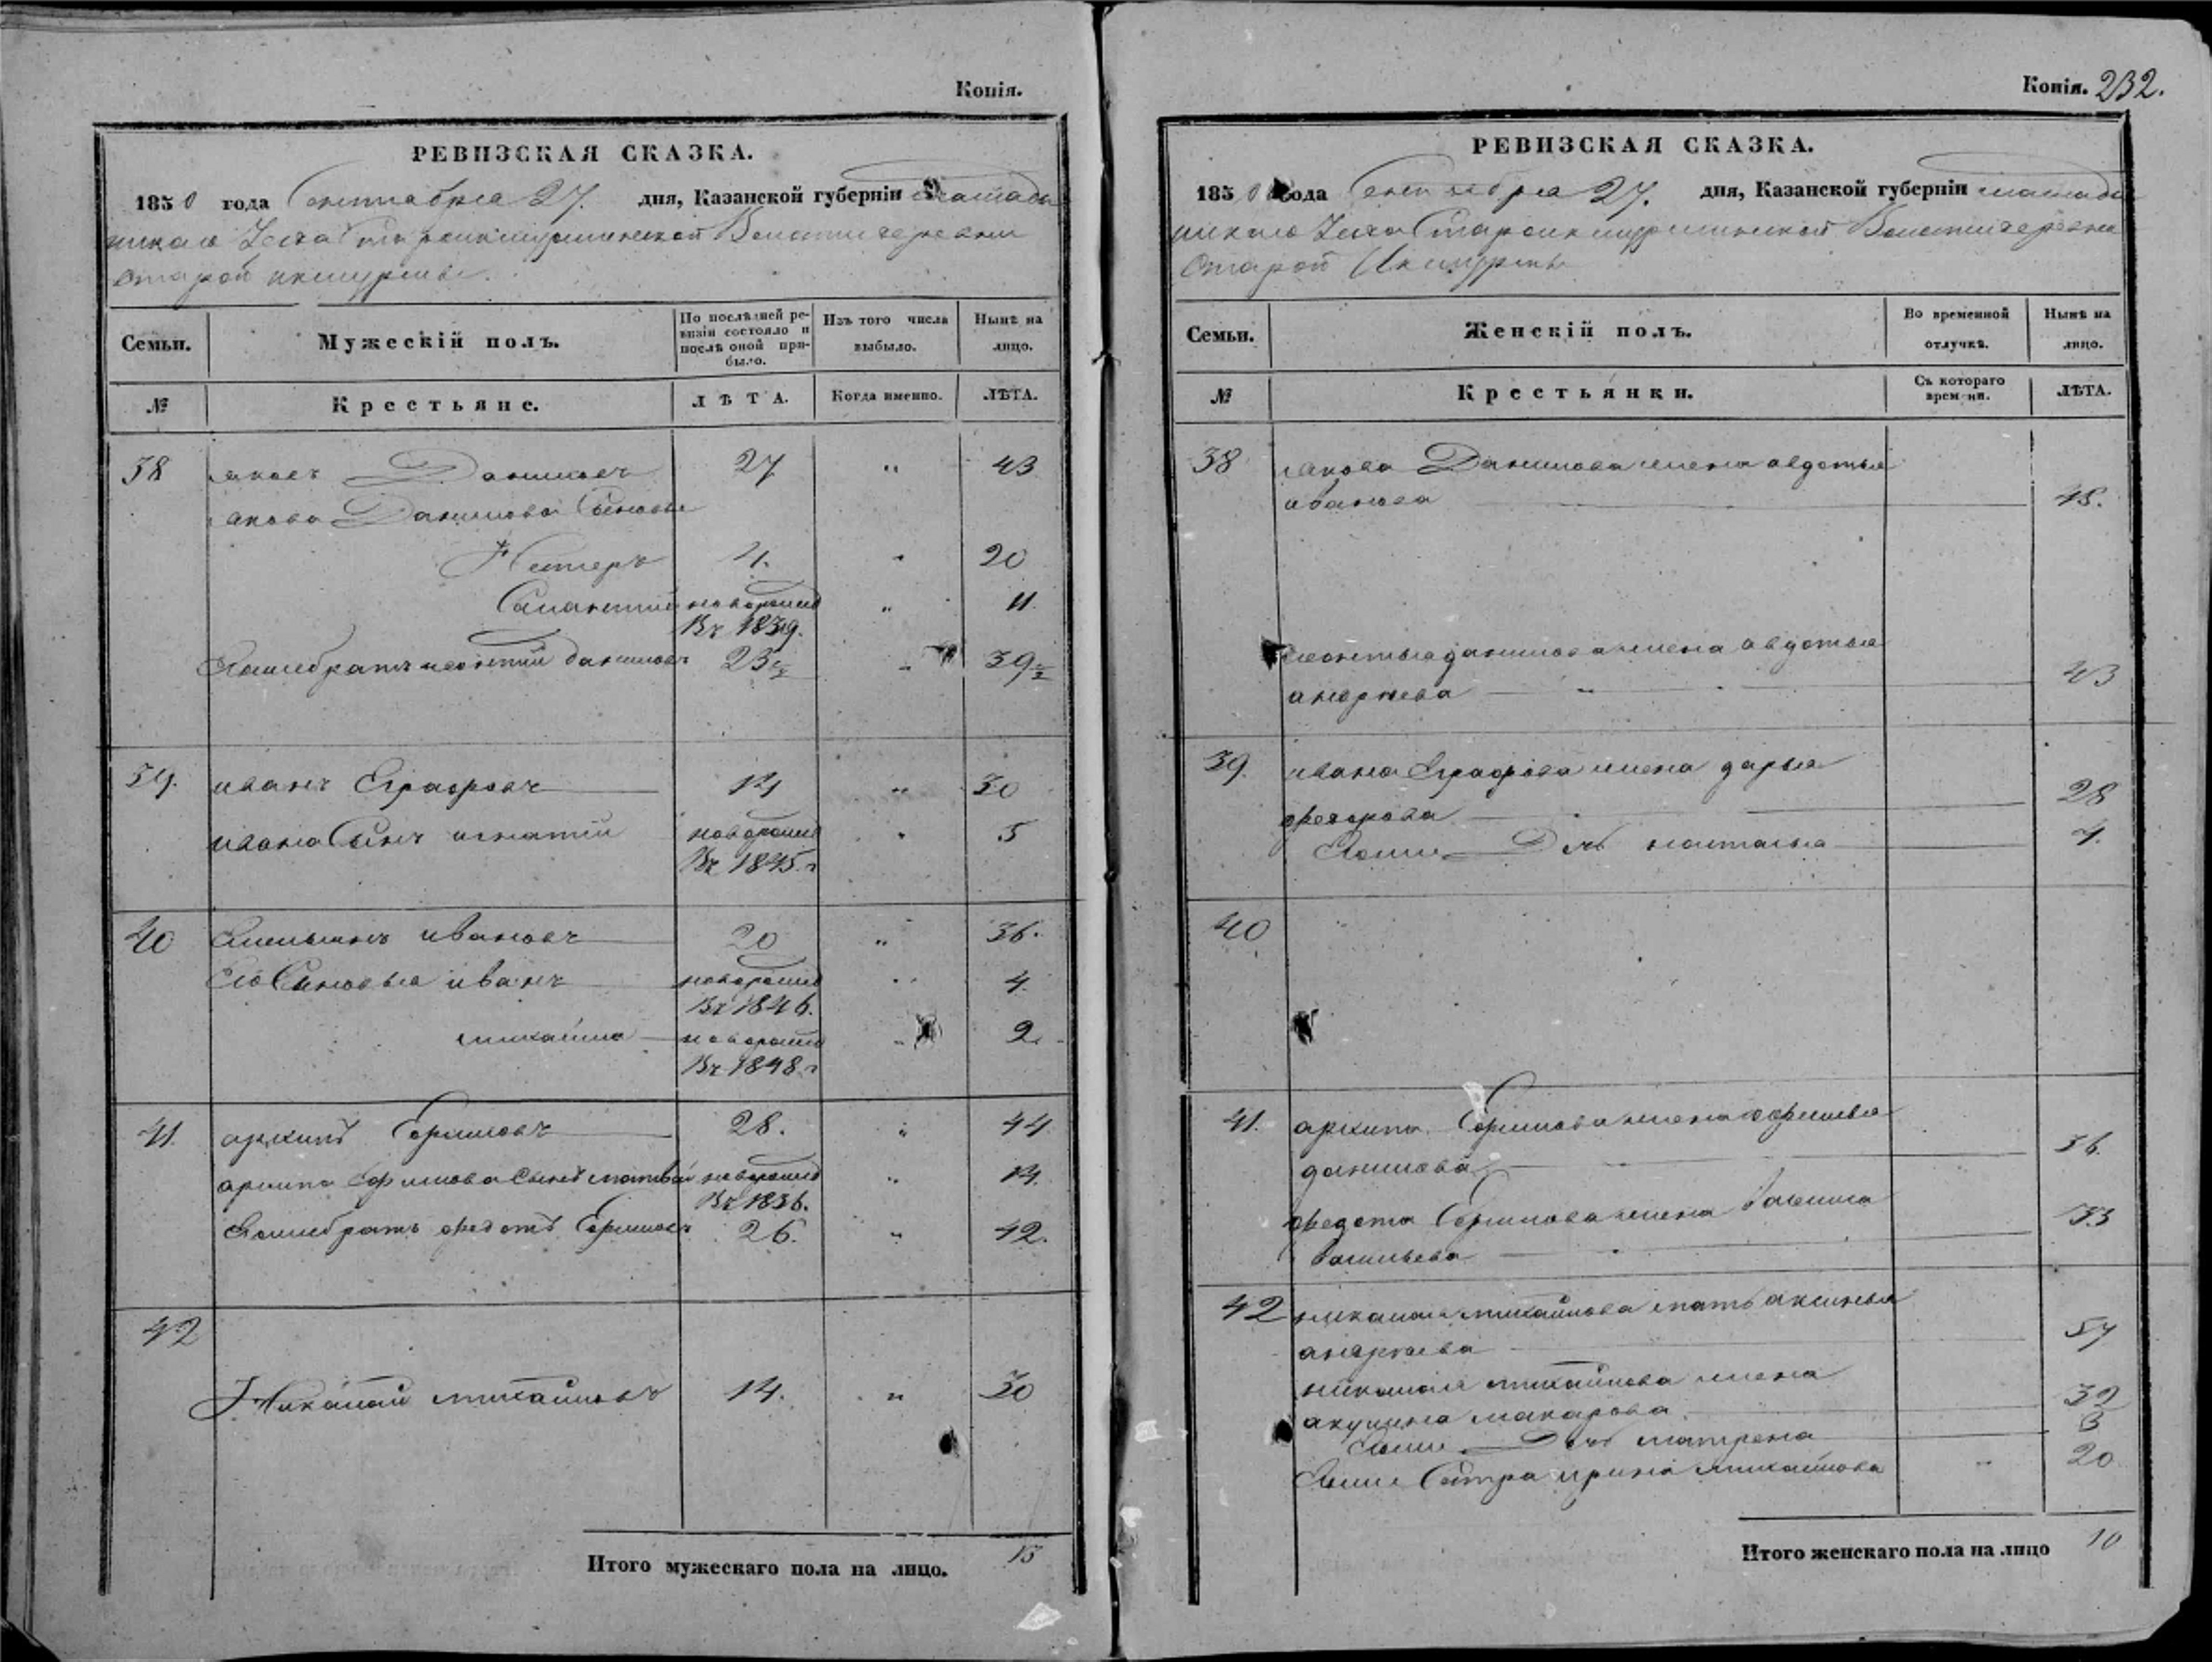 Копія.
РЕВИЗСКАЯ СКАЗКА.
1850 года Сентября 27. дня, Казанской губерніи Мамады
шскаго Уезда Староикшурминской Волости деревни
Старой икшурмы.
Семьи.
Мужескій полъ.
По послѣдней ре-
визіи состояло и
послѣ оной при-
было.
Изъ того числа
выбыло.
Нынѣ на
лицо.
№
Крестьяне.
ЛѢТА.
Когда именно.
ЛѢТА.
38 яковъ Даниловъ 27 " 43
якова Данилова Сыновья
Нестеръ 4. " 20
новорожд " 11.
Въ 1839.
Егоже братъ леонтий даниловъ 23 1/2 " 39 1/2
39. иванъ Еграфовъ 14 " 30
ивана Сынъ игнатий новорожд " 5
Въ 1845. г
40 Емельянъ ивановъ 20 " 36.
Его Сыновья иванъ новорожд " 4.
Въ 1846.
михайла новорожд " 2
Въ 1848. г
41. архипъ Ефимовъ 28. " 44
архипа Ефимова Сынъ матвей новорожд " 14.
Въ 1836.
Егоже братъ федотъ Ефимовъ 26. " 42.
42
Николай михайловъ 14. " 30
Итого мужескаго пола на лицо. 13
Копія. 232.
РЕВИЗСКАЯ СКАЗКА.
1850 года Сентября 27. дня, Казанской губерніи мамады
шскаго Уезда Староикшурминской Волости деревни
Старой Икшурмы
Семьи.
Женскій полъ.
Во временной
отлучкѣ.
Нынѣ на
лицо.
№
Крестьянки.
Съ котораго
времени.
ЛѢТА.
38 якова Данилова жена авдотья
иванова 48.
леонтья данилова жена авдотья
андреева " 43
39. ивана Еграфова жена дарья
федорова 28
Егоже Дчь наталья 4.
40
41. архипа Ефимова жена
данилова 36.
федота Ефимова жена
васильева 33
42 николая михайлова мать аксинья
андреева 57
николая михайлова жена
акулина макарова 32
Егоже Дчь матрена 3
Егоже Сестра ирина михайлова " 20
Итого женскаго пола на лицо 10